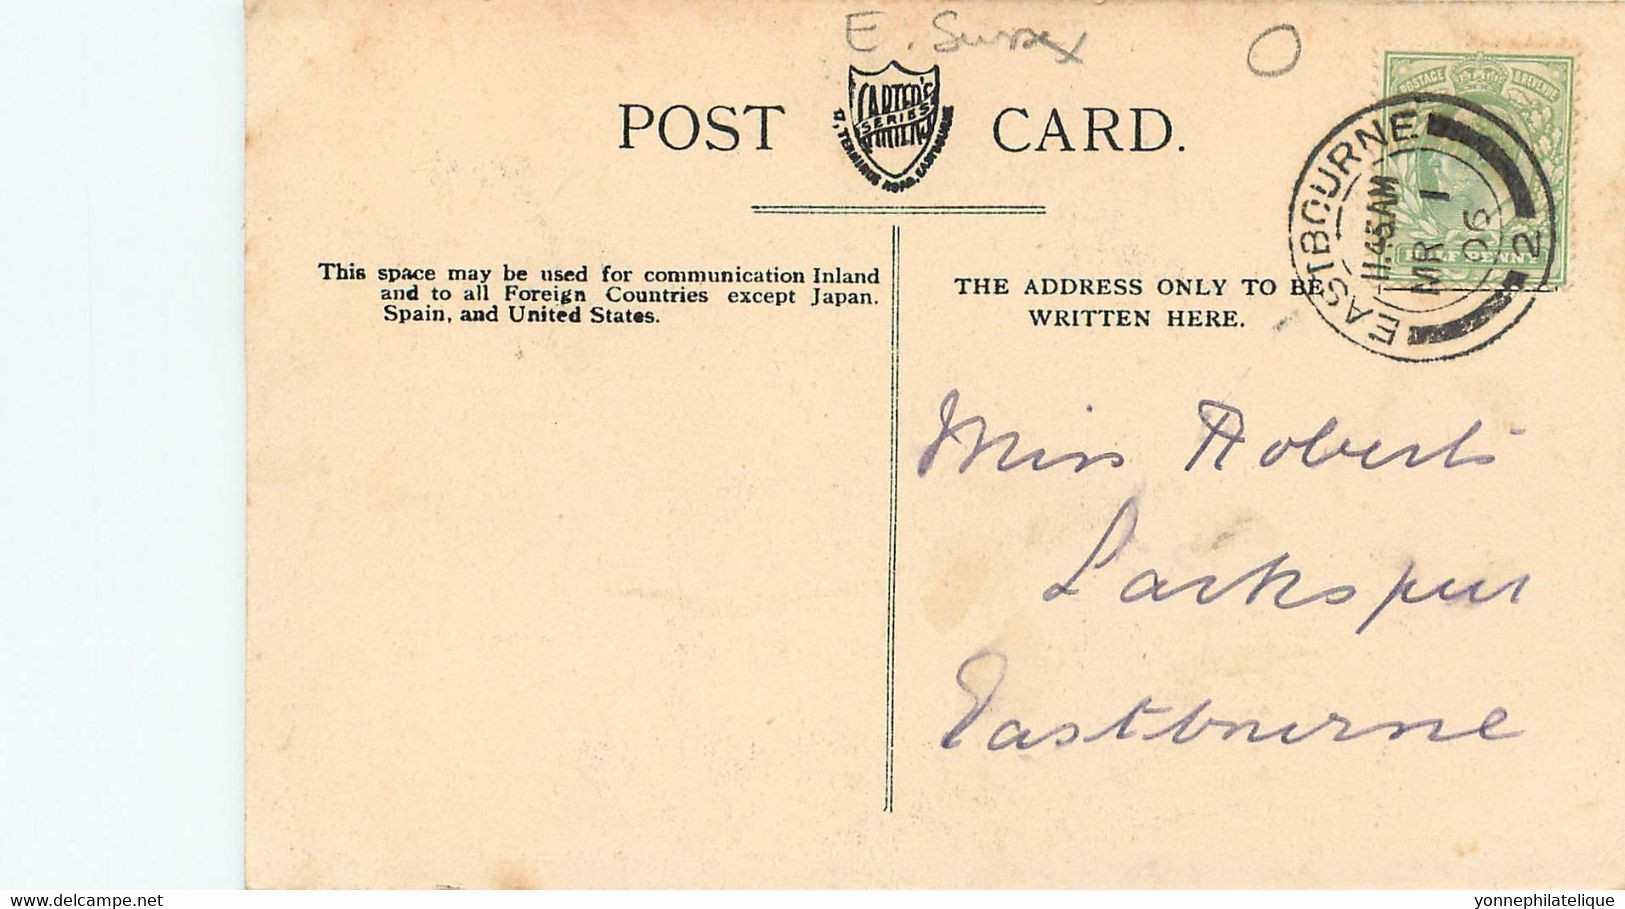 E. Sussex
POST CARD.
CARTER'S
SERIES
17, TERMINUS ROAD, EASTBOURNE
POSTAGE & REVENUE
HALF PENNY
EASTBOURNE
11.45AM
MR 1
06
2
This space may be used for communication Inland
and to all Foreign Countries except Japan.
Spain, and United States.
THE ADDRESS ONLY TO BE
WRITTEN HERE.
Miss Roberts
Larkspur
Eastbourne
delcampe.net
yonnephilatelique